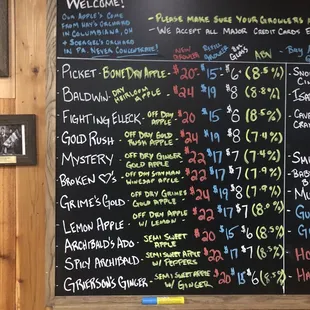 WELCOME!
Our Apple's Come
from Hay's Orchard
in Columbiana, OH
+ Soergel's Orchard
in PA. Never Concentrate!
- Please make Sure Your Growlers
- We accept all Major Credit Cards
New Growler Refill Growler 8oz Glass ABV
Picket - Bone Dry Apple - $20 - $15 - $6 (8.5%)
Baldwin - Dry Heirloom Apple - $24 $19 $8 (8.8%)
Fighting Elleck - Off Dry Apple $20 $15 $6 (8.5%)
Gold Rush - Off Dry Gold Rush Apple $24 $19 $8 (7.4%)
Mystery - Off Dry Ginger Gold Apple $22 $17 $7 (7.4%)
Broken ♡'s - Off Dry Stayman Winesap Apple $22 $17 $7 (7.9%)
Grime's Gold - Off Dry Grimes Gold Apple $24 $19 $8 (7.9%)
Lemon Apple - Off Dry Apple w/ Lemon $22 $17 $7 (8.0%)
Archibald's Ado - Semi Sweet Apple $20 $15 $6 (8.5%)
Spicy Archibald - Semi Sweet Apple w/ Peppers $22 $17 $7 (8.5%)
Gryerson's Ginger - Semi Sweet Apple w/ Ginger $20 $15 $6 (8.5%)